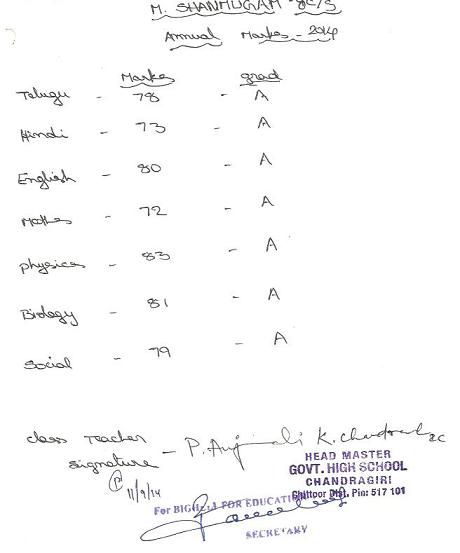 M. SHANMUGAM - 8C/S
Annual Marks - 2014
Marks grad
Telugu - 78 - A
Hindi - 73 - A
English - 80 - A
Maths - 72 - A
physics - 83 - A
Biology - 81 - A
Social - 79 - A
class Teacher signature - P. Anjali K. Chandra 8C
HEAD MASTER
GOVT. HIGH SCHOOL
CHANDRAGIRI
Chittoor Dist. Pin: 517 101
11/9/14
For BIGHELP FOR EDUCATION
SECRETARY